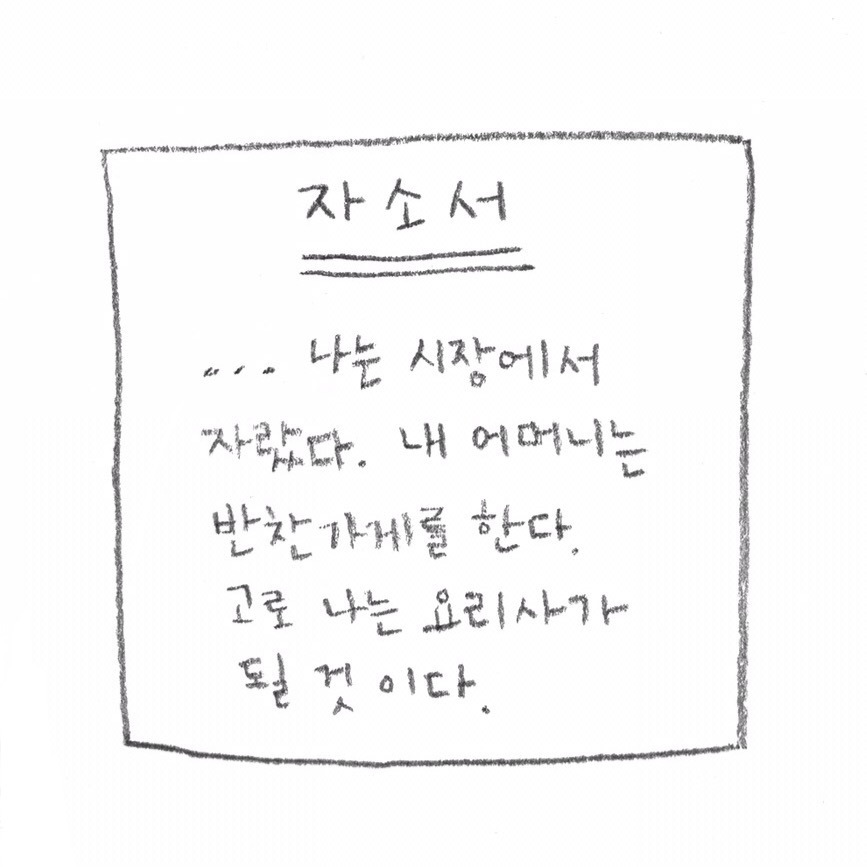 자소서
... 나는 시장에서
자랐다. 내 어머니는
반찬가게를 한다.
고로 나는 요리사가
될 것이다.